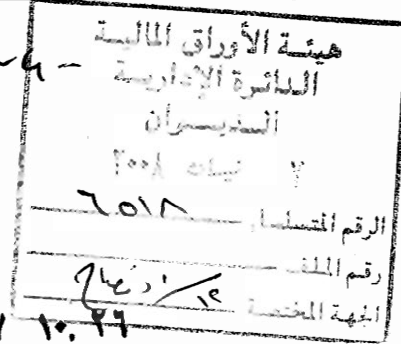 هيئة الأوراق المالية
الدائرة الإدارية
الديوان
٧ نيسان ٢٠٠٨
الرقم المتسلسل ٦٥١٨
رقم الملف
الجهة المختصة ١٢/
١٠.٢٦